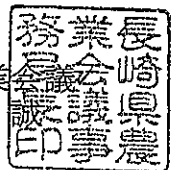 長崎県農
業会議事
務局長印
会議
誠